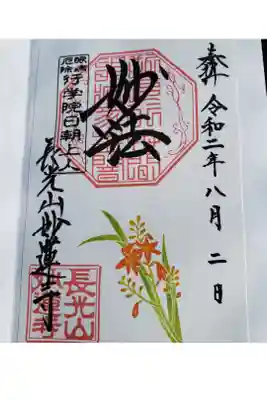 奉拝 令和二年八月二日
妙法
眼病
厄除
行学院日朝上人
長光山妙蓮寺
長光山
妙蓮寺